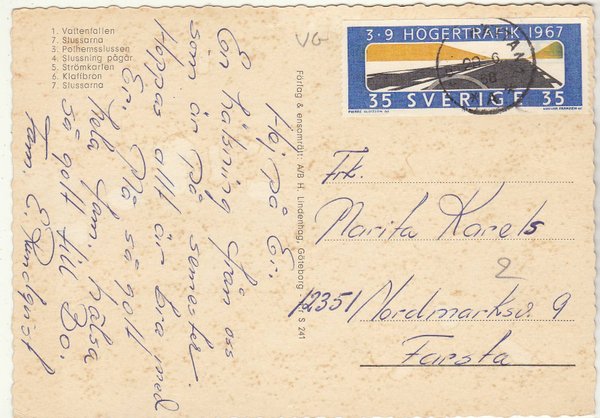 1. Vattenfallen
7. Slussarna
3. Polhemsslussen
4. Slussning pågår
5. Strömkarlen
6. Klaffbron
7. Slussarna
VG
3·9 HÖGERTRAFIK 1967
35 SVERIGE 35
Förlag & ensamrätt: A/B H. Lindenhag, Göteborg
S 241
Hej på Er.
En hälsning från oss
som är på semester.
Hoppas allt är bra med
Er.
Må så gott
hela fam. hälsa
så gott till Bo.
Fam. E.
Frk.
Marita Karels
2
12351 Nordmarksv. 9
Farsta